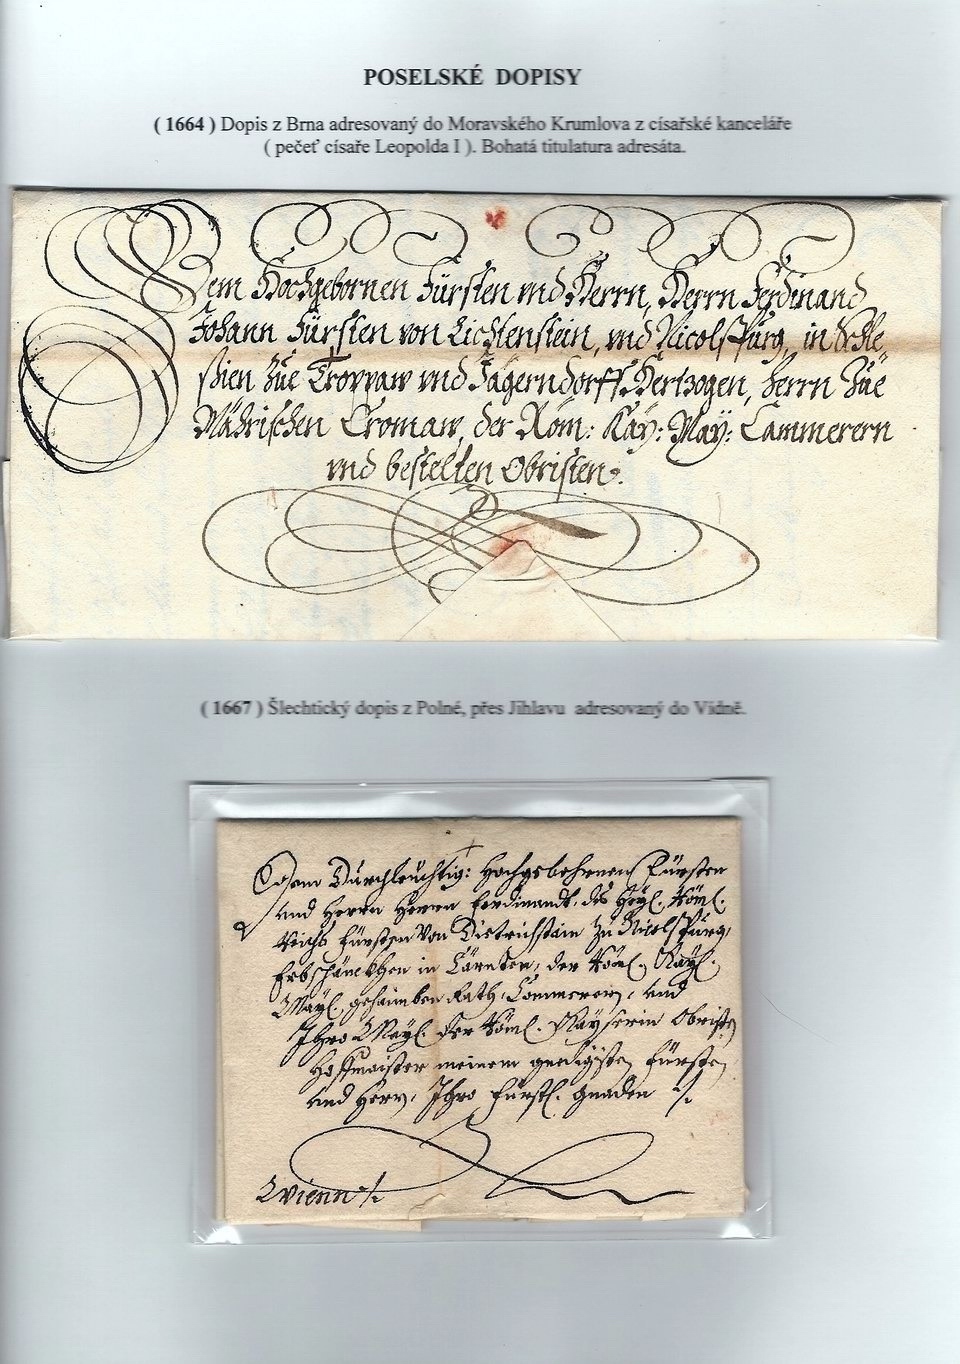 POSELSKÉ DOPISY
( 1664 ) Dopis z Brna adresovaný do Moravského Krumlova z císařské kanceláře
( pečeť císaře Leopolda I ). Bohatá titulatura adresáta.
Dem Hochgebornen Fürsten vnd Herrn, Herrn Ferdinand
Johann Fürsten von Lichtenstein, vnd Nicolspurg, in Schle,
sien Zue Troppaw vnd Jägerndorff Hertzogen, Herrn Zue
Mährischen Cromaw, der Röm: Kay: May: Cammerern
vnd bestelten Obristen.
( 1667 ) Šlechtický dopis z Polné, přes Jihlavu adresovaný do Vídně.
Dem Durchleüchtig: Hochgebohrnen Fürsten
und Herrn Herrn Ferdinandt, des Heyl. Röml.
Reichs Fürsten Von Dietrichstain Zu Nicolspurg,
Erbschänckhen in Cärnten, der Röml. Kayl.
Mayl. gehaimben Rath, Cammerern, und
Ihro Mayl. der Röml. Kayserin Obristen
Hoffmaister meinem gnedigsten Fürsten
und Herrn, Ihro Fürstl. Gnaden ./.
Wienn ./.